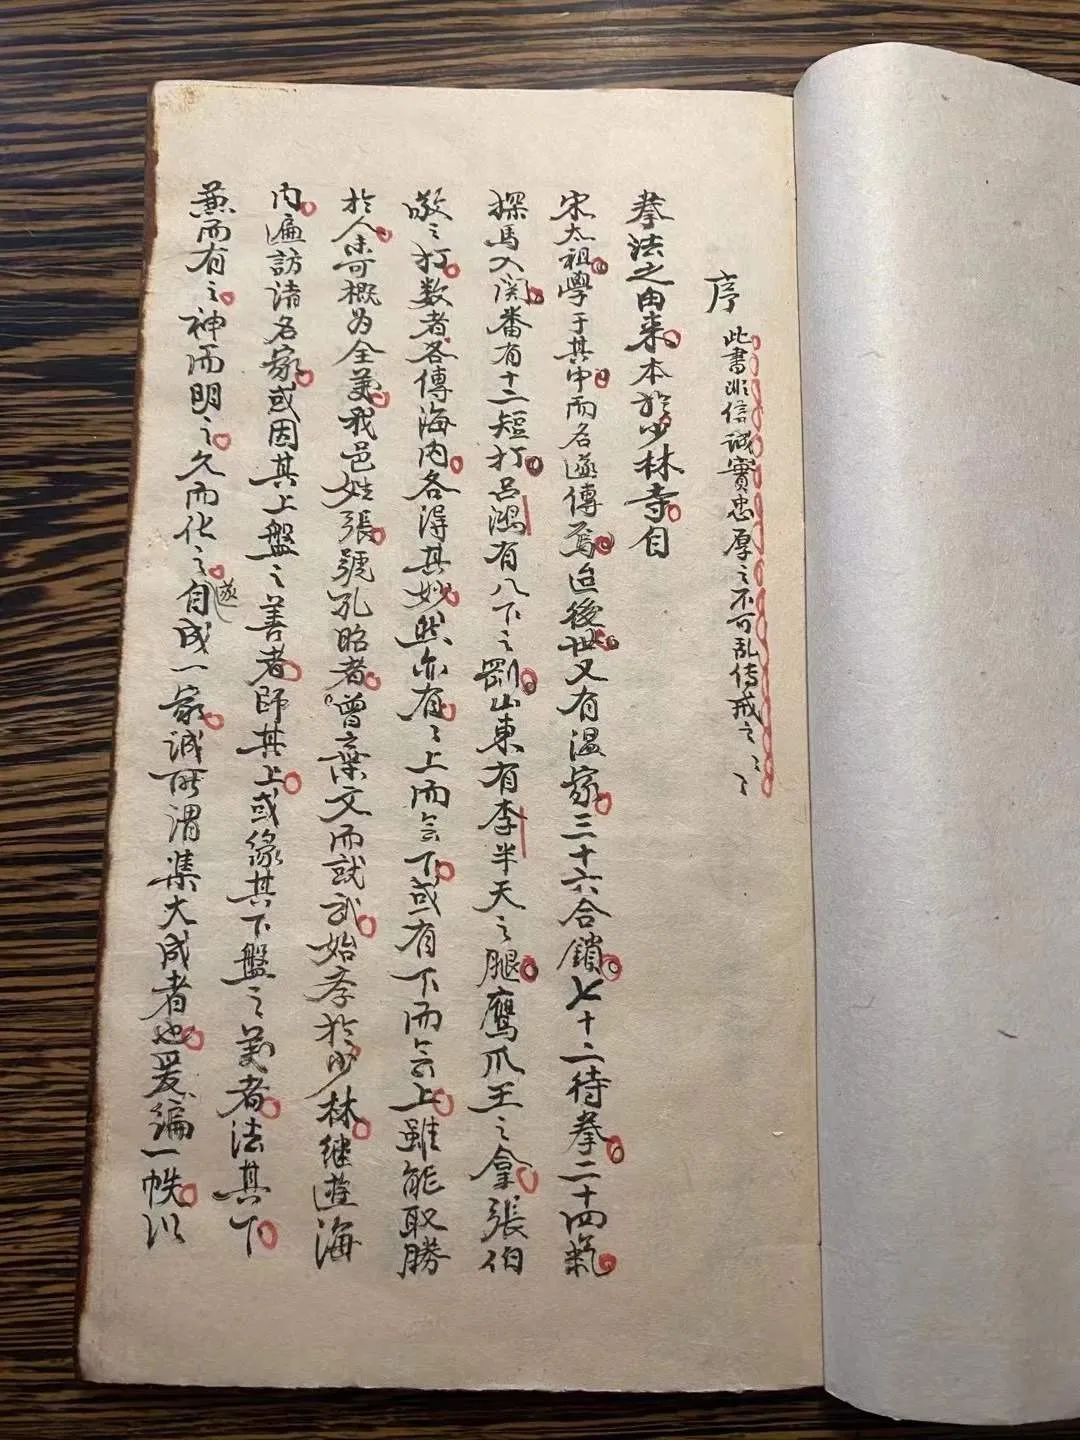 序 此書非信誠實忠厚之不可乱传戒之ミミ
拳法之由来本於少林寺自
宋太祖學于其中而名遂傳焉迨後世又有温家三十六合鎖七十二待拳二十四氣
探馬入関番有十二短打吕鴻有八下之剛山東有李半天之腿鹰爪王之拿張伯
敬之打数者各傳海内各得其妙然亦有ミ上而無下或有下而無上雖能取勝
於人未可概为全美我邑姓張號孔昭者曾棄文而試武始孝於少林继遊海
内遍訪诸名家或因其上盤之善者師其上或緣其下盤之美者法其下
兼而有之神而明之久而化之自遂成一家诚所谓集大成者也爰编一帙以